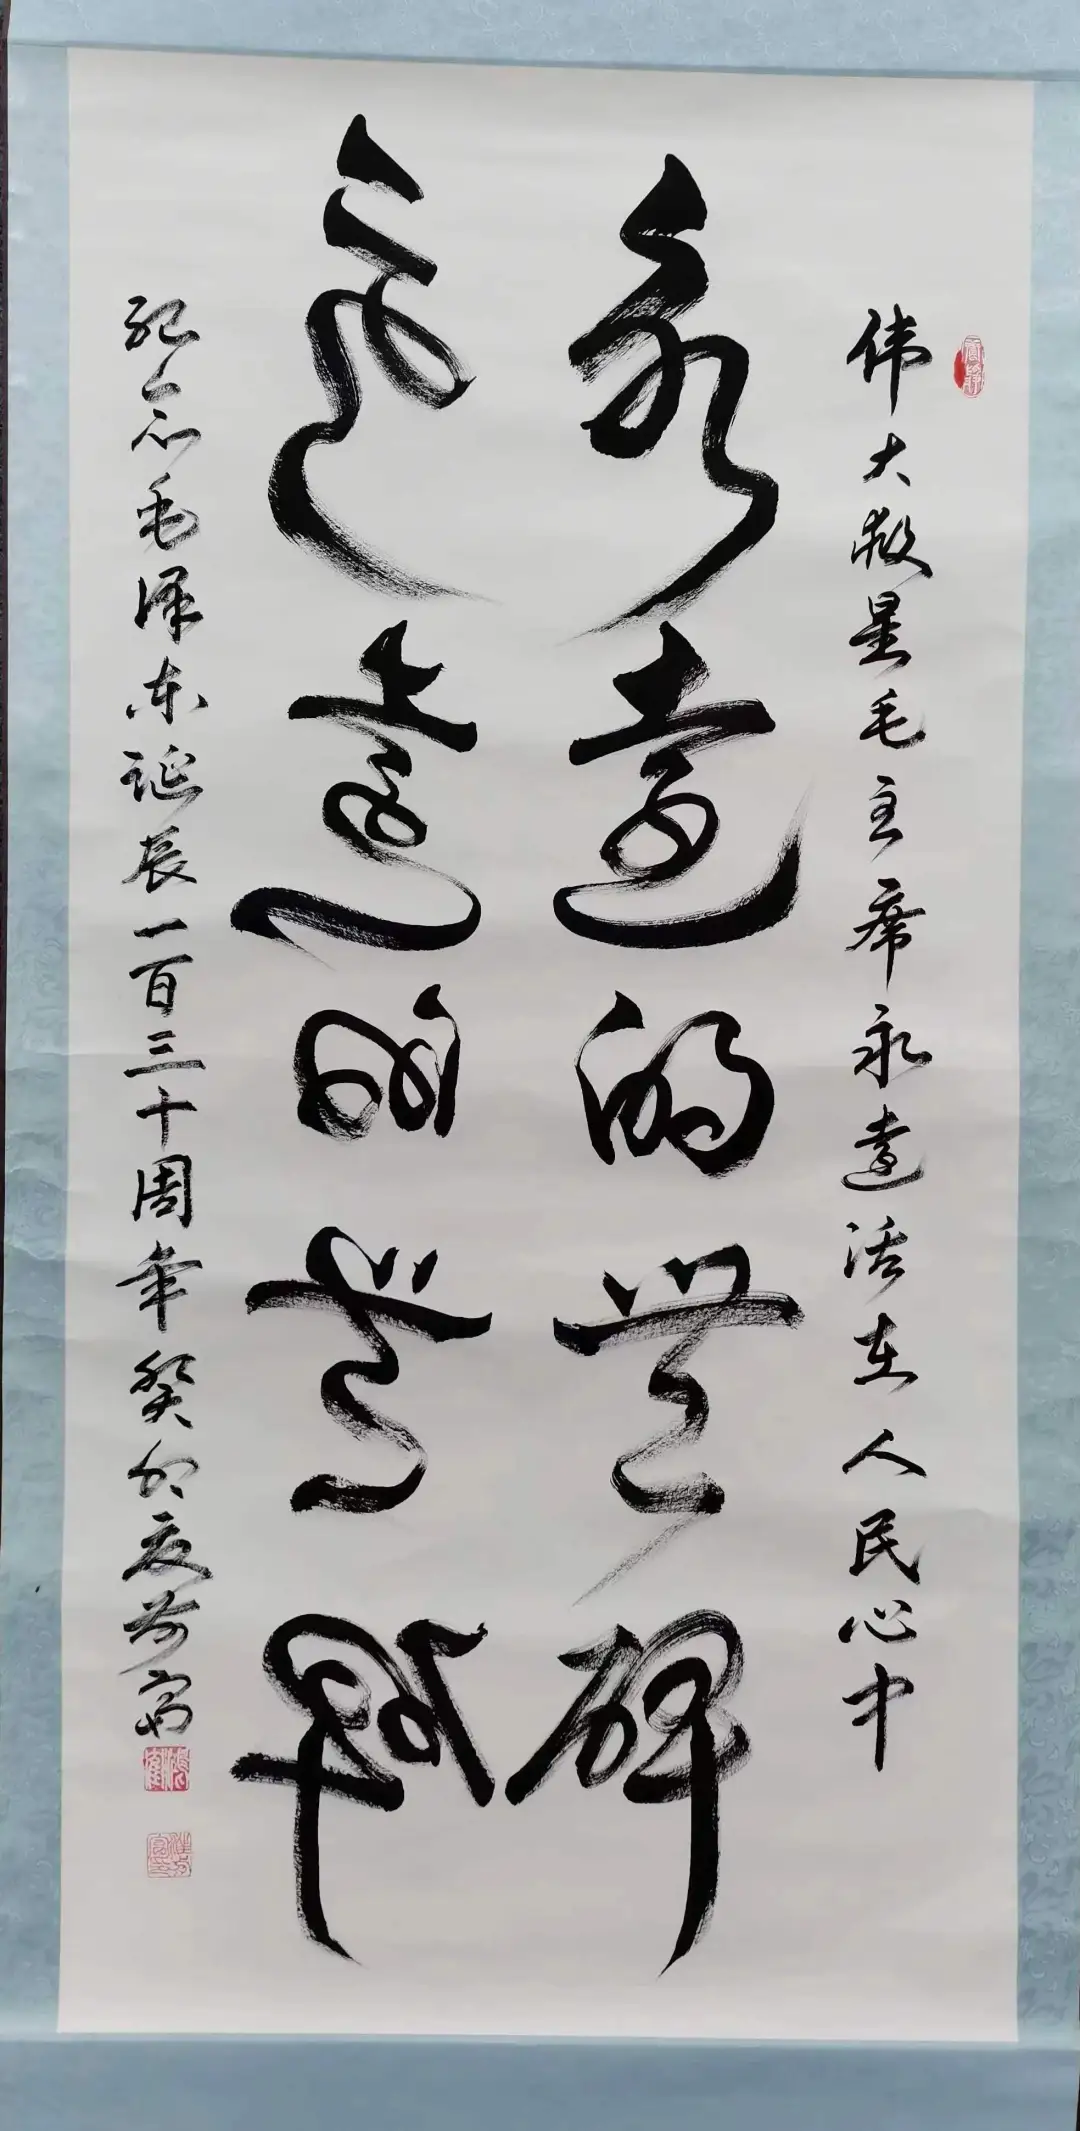 伟大救星毛主席永遠活在人民心中
永遠的豐碑
永遠的豐碑
纪念毛泽东诞辰一百三十周年癸卯夏